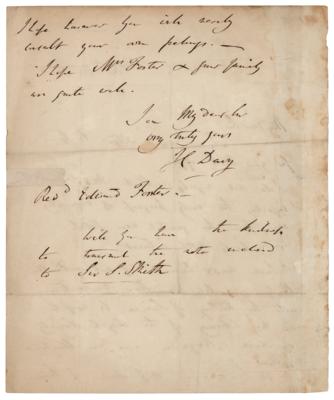 I hope however you will merely
consult your own feelings. —
I hope Mrs Foster & your family
are quite well.
I am My dear Sir
very truly yours
H Davy
Revd Edward Foster —
Will you have the kindness
to transmit the note enclosed
to Sir S. Smith